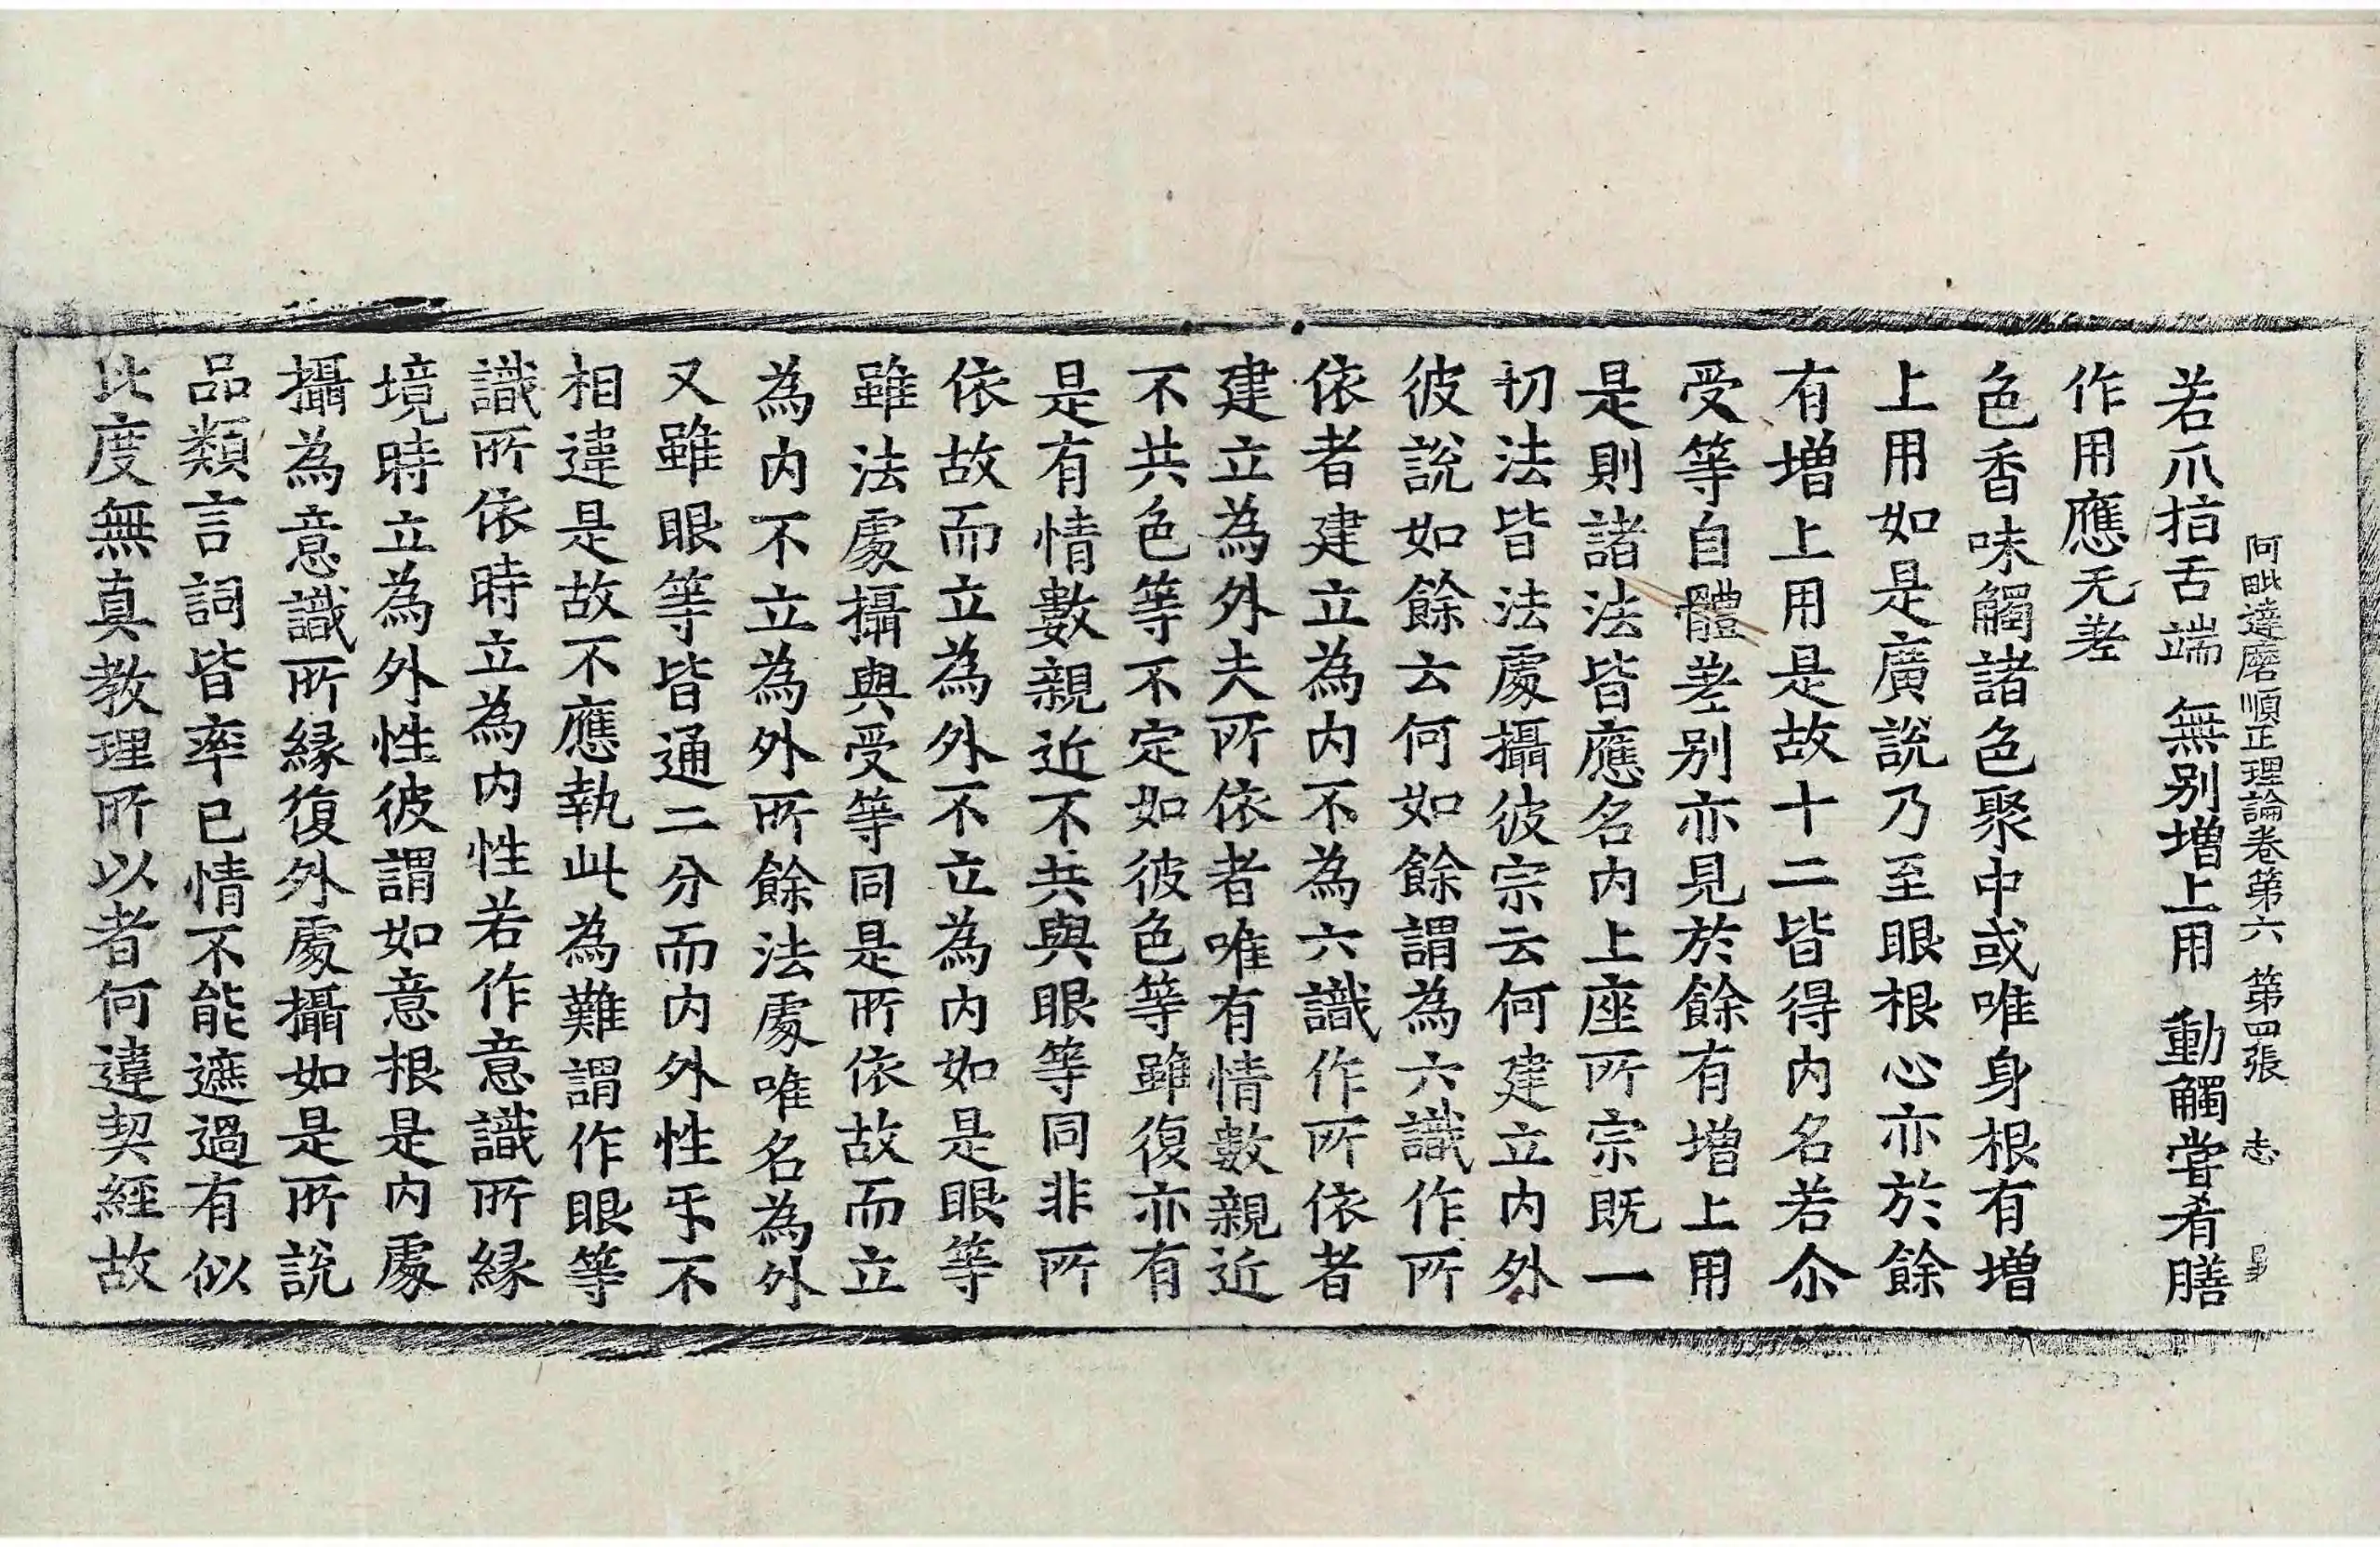 阿毗達磨順正理論卷第六 第四張 志
若爪指舌端 無別增上用 動觸嘗肴膳
作用應无差
色香味觸諸色聚中或唯身根有增
上用如是廣說乃至眼根心亦於餘
有增上用是故十二皆得内名若尒
受等自體差别亦見於餘有增上用
是則諸法皆應名内上座所宗既一
切法皆法處攝彼宗云何建立内外
彼說如餘去何如餘謂為六識作所
依者建立為内不為六識作所依者
建立為外夫所依者唯有情數親近
不共色等不定如彼色等雖復亦有
是有情數親近不共與眼等同非所
依故而立為外不立為内如是眼等
雖法處攝與受等同是所依故而立
為内不立為外所餘法處唯名為外
又雖眼等皆通二分而内外性乐不
相違是故不應執此為難謂作眼等
識所依時立為内性若作意識所緣
境時立為外性彼謂如意根是内處
攝為意識所緣復外處攝如是所說
品類言詞皆率已情不能遮過有似
比度無真教理所以者何違契經故